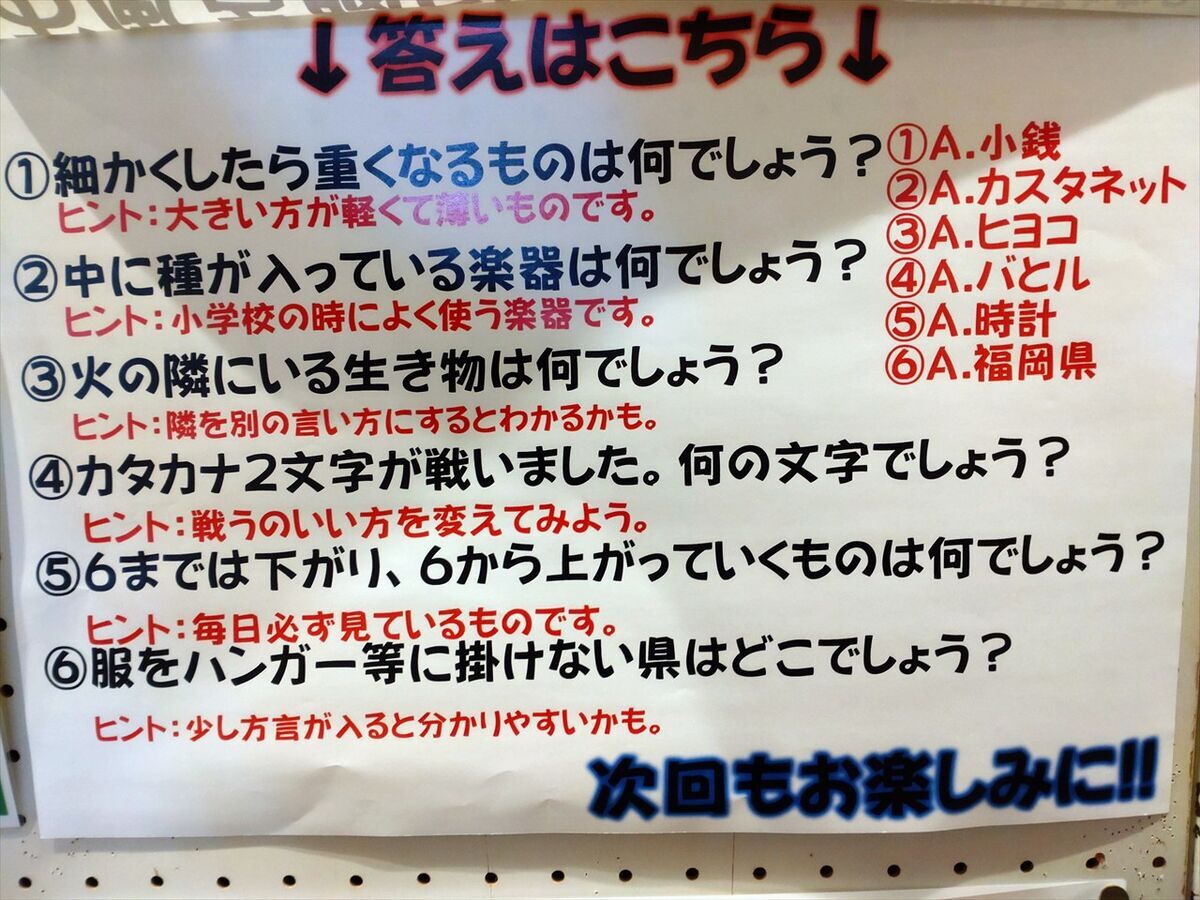 ↓答えはこちら↓
①細かくしたら重くなるものは何でしょう？
ヒント：大きい方が軽くて薄いものです。
②中に種が入っている楽器は何でしょう？
ヒント：小学校の時によく使う楽器です。
③火の隣にいる生き物は何でしょう？
ヒント：隣を別の言い方にするとわかるかも。
④カタカナ２文字が戦いました。何の文字でしょう？
ヒント：戦うのいい方を変えてみよう。
⑤６までは下がり、６から上がっていくものは何でしょう？
ヒント：毎日必ず見ているものです。
⑥服をハンガー等に掛けない県はどこでしょう？
ヒント：少し方言が入ると分かりやすいかも。
①Ａ.小銭
②Ａ.カスタネット
③Ａ.ヒヨコ
④Ａ.バとル
⑤Ａ.時計
⑥Ａ.福岡県
次回もお楽しみに!!